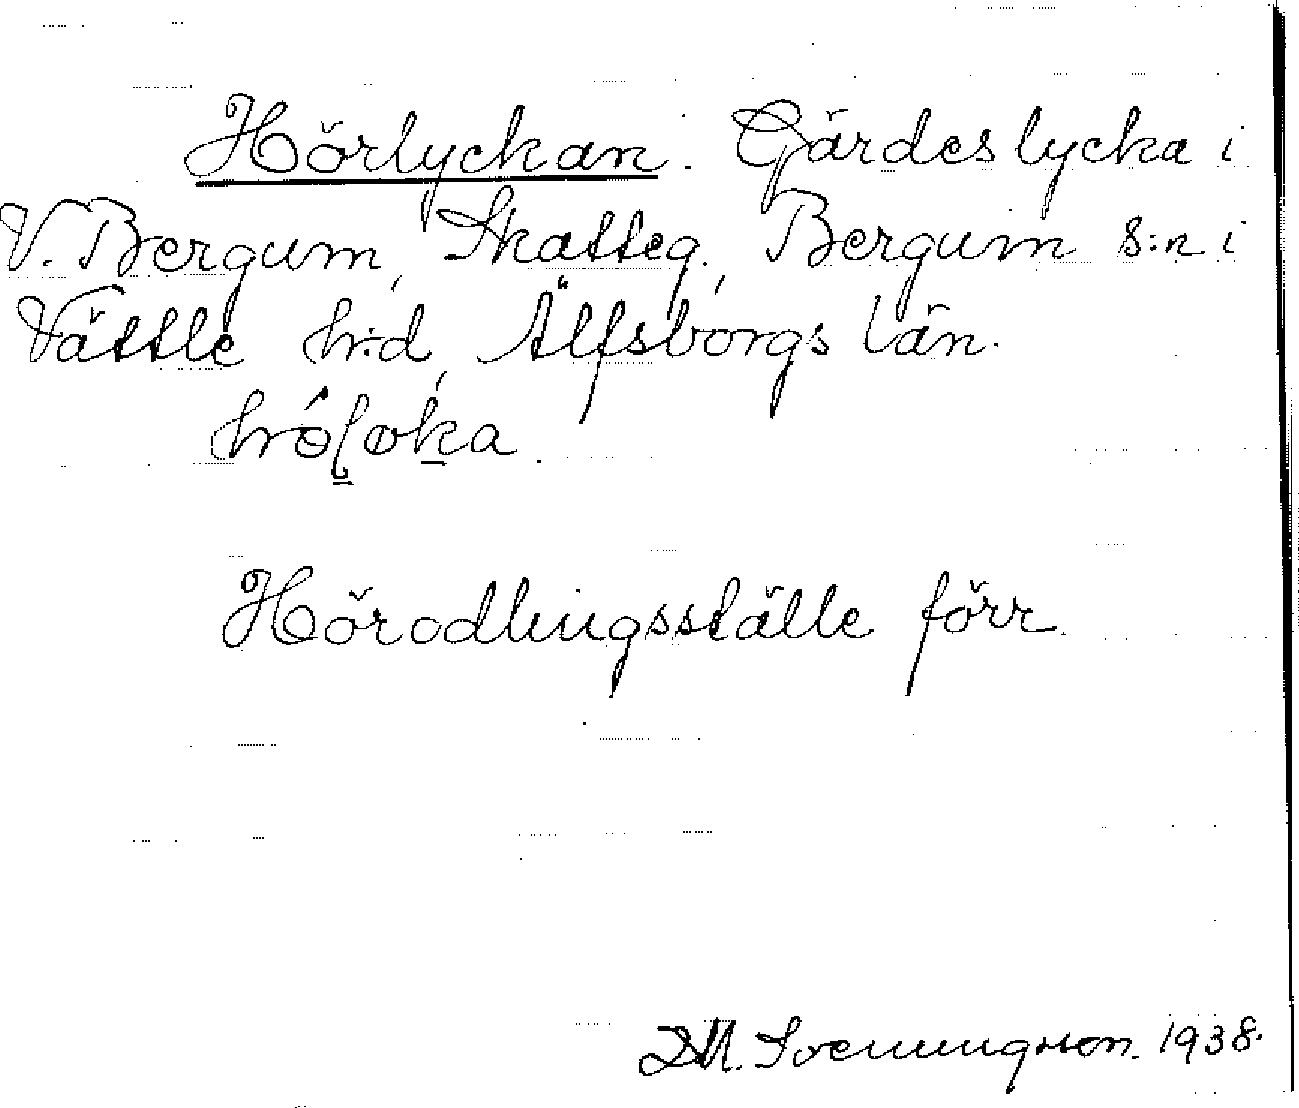 Hörlyckan. Gärdeslycka i
V. Bergum, Skatteg., Bergum s:n i
Vättle hrd, Älfsborgs län.
Hörodlingsställe förr.
D.M. Svenningsson. 1938.